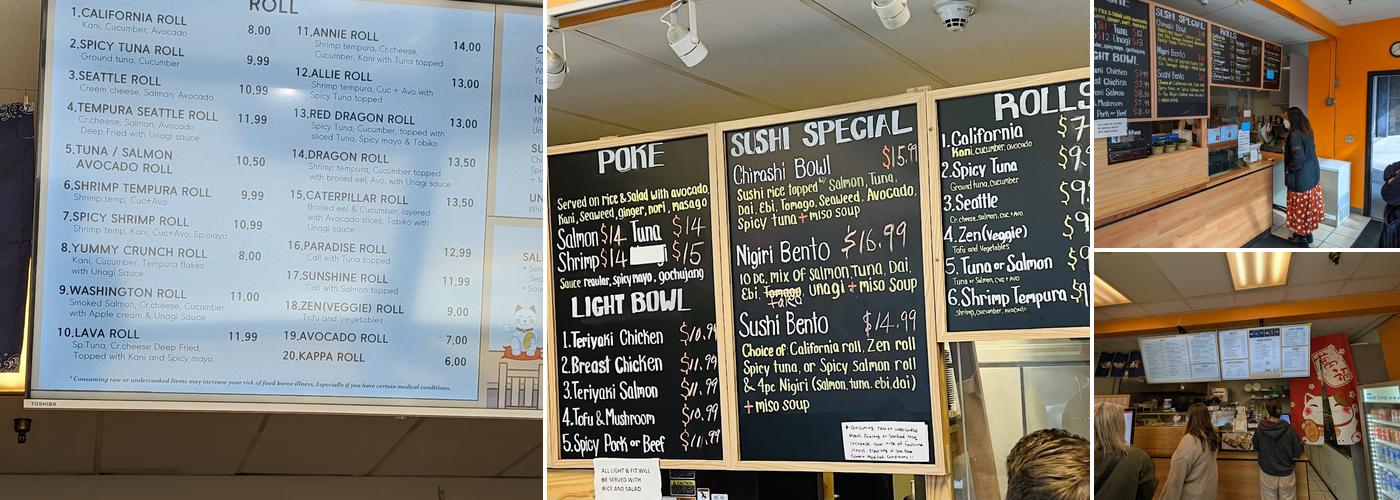 ROLL
1.CALIFORNIA ROLL 8,00
Kani, Cucumber, Avocado
2.SPICY TUNA ROLL 9,99
Ground tuna, Cucumber
3.SEATTLE ROLL 10,99
Creem cheese, Salmon, Avocado
4.TEMPURA SEATTLE ROLL 11,99
Cr.cheese, Salmon, Avocado
Deep Fried with Unagi sauce
5.TUNA / SALMON 10,50
AVOCADO ROLL
6.SHRIMP TEMPURA ROLL 9,99
Shrimp temp, Cuc+Avo
7.SPICY SHRIMP ROLL 10,99
Shrimp temp, Kani, Cuc+Avo, Sp.mayo
8.YUMMY CRUNCH ROLL 8,00
Kani, Cucumber, Tempura flakes
with Unagi Sauce
9.WASHINGTON ROLL 11,00
Smoked Salmon, Cr.cheese, Cucumber
with Apple cream & Unagi Sauce
10.LAVA ROLL 11,99
Sp.Tuna, Cr.cheese Deep Fried,
Topped with Kani and Spicy mayo
11.ANNIE ROLL 14,00
Shrimp tempura, Cr.cheese,
Cucumber, Kani with Tuna topped
12.ALLIE ROLL 13,00
Shrimp tempura, Cuc + Avo with
Spicy Tuna topped
13.RED DRAGON ROLL 13,00
Spicy Tuna, Cucumber, topped with
Sliced Tuna, Spicy mayo & Tobiko
14.DRAGON ROLL 13,50
Shrimp tempura, Cucumber topped
with broiled eel, Avo, with Unagi sauce
15.CATERPILLAR ROLL 13,50
Broiled eel & Cucumber, layered
with Avocado slices, Tobiko with
Unagi sauce
16.PARADISE ROLL 12,99
Cali with Tuna topped
17.SUNSHINE ROLL 11,99
Cali with Salmon topped
18.ZEN(VEGGIE) ROLL 9,00
Tofu and Vegetables
19.AVOCADO ROLL 7,00
20.KAPPA ROLL 6,00
* Consuming raw or undercooked items may increase your risk of food borne illness, Especially if you have certain medical conditions.
TOSHIBA
POKE
Served on rice & Salad with avocado,
Kani, Seaweed, ginger, nori, masago
Salmon $14 Tuna $14
Shrimp $14 $15
Sauce regular, spicy mayo, gochujang
LIGHT BOWL
1.Teriyaki Chicken $10.99
2.Breast Chicken $11.99
3.Teriyaki Salmon $11.99
4.Tofu & Mushroom $10.99
5.Spicy Pork or Beef $11.99
ALL LIGHT & FIT WILL
BE SERVED WITH
RICE AND SALAD
SUSHI SPECIAL
Chirashi Bowl $15.99
Sushi rice topped w/ Salmon, Tuna,
Dai, Ebi, Tomago, Seaweed, Avocado,
Spicy tuna + miso soup
Nigiri Bento $16.99
10 pc, mix of salmon, Tuna, Dai,
Ebi, Tomago, Unagi + miso Soup
Tako
Sushi Bento $14.99
Choice of California roll, Zen roll
Spicy tuna, or Spicy Salmon roll
& 4pc Nigiri (Salmon, tuna, ebi, dai)
+ miso soup
ROLLS
1.California $7
Kani, cucumber, avocado
2.Spicy Tuna $9
Ground tuna, cucumber
3.Seattle $9
Cr.cheese, salmon, cuc+avo
4.Zen(Veggie) $9
Tofu and Vegetables
5.Tuna or Salmon $9
Tuna or Salmon, cuc+avo
6.Shrimp Tempura $9
Shrimp, cucumber, avocado
SUSHI SPECIAL
Chirashi Bowl
Nigiri Bento
Sushi Bento
ROLLS